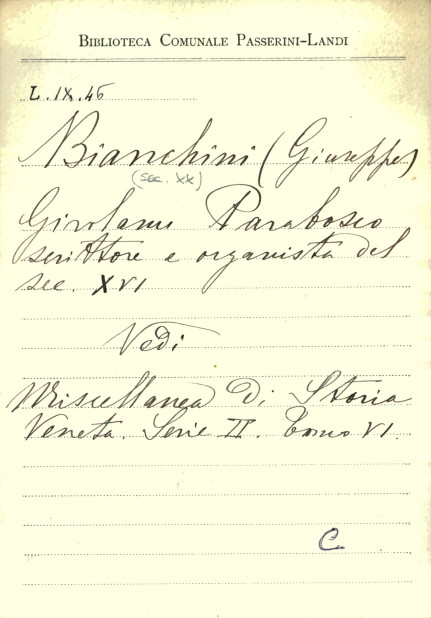 BIBLIOTECA COMUNALE PASSERINI-LANDI
L. IX. 46
Bianchini (Giuseppe)
(sec. XX)
Girolamo Parabosco
scrittore e organista del
sec. XVI
Vedi
Miscellanea di Storia
Veneta. Serie II. Tomo VI.